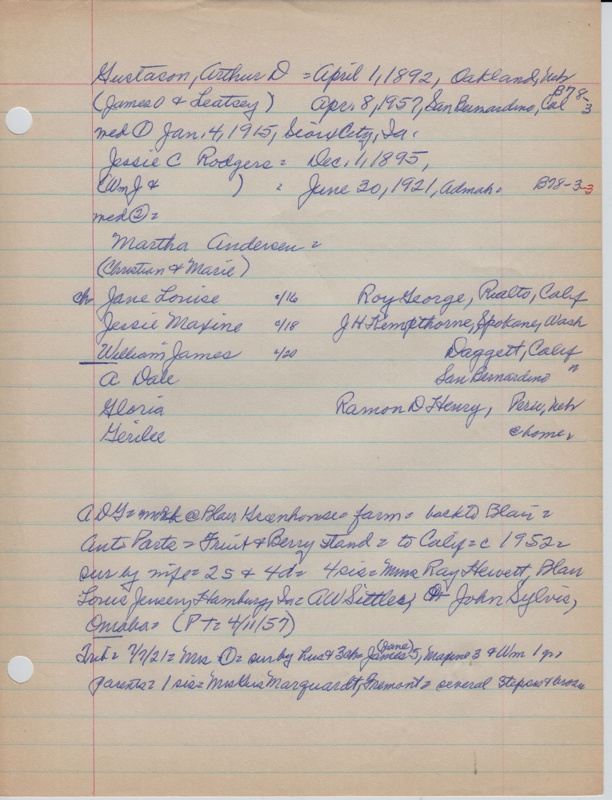 Gustason, Arthur D = April 1, 1892, Oakland, Neb
(James O & Leatsey) Apr. 8, 1957, San Bernardino, Cal B78-3
med ① Jan. 4, 1915, Sioux City, Ia.
Jessie C Rodgers = Dec. 1, 1895,
(Wm J & ) = June 30, 1921, Admah = B78-3-3
med ② =
Martha Andersen =
(Christian & Marie)
ch Jane Louise c/16 Roy George, Rialto, Calif
Jessie Maxine c/18 J H Kempthorne, Spokane, Wash
William James c/20 Daggett, Calif
A Dale San Bernardino "
Gloria Ramon D Henry, Peru, Neb
Gerilee @ home.
ADG = work @ Blair Greenhouse = farm = back to Blair =
Auto Parts = Fruit & Berry Stand = to Calif = c 1952 =
sur by wife = 2s & 4d = 4 sis = Mmes Ray Hewett, Blair
Louis Jensen, Hamburg, Ia = A W Sittler, John Sylvis,
Omaha = (PT = 4/11/57)
Trib = 7/7/21 = Mrs ① = sur by hus & 3 ch = James (Jane) 5, Maxine 3 & Wm 1 yr =
parents = 1 sis = Mrs Gus Marquardt, Fremont = several steps &